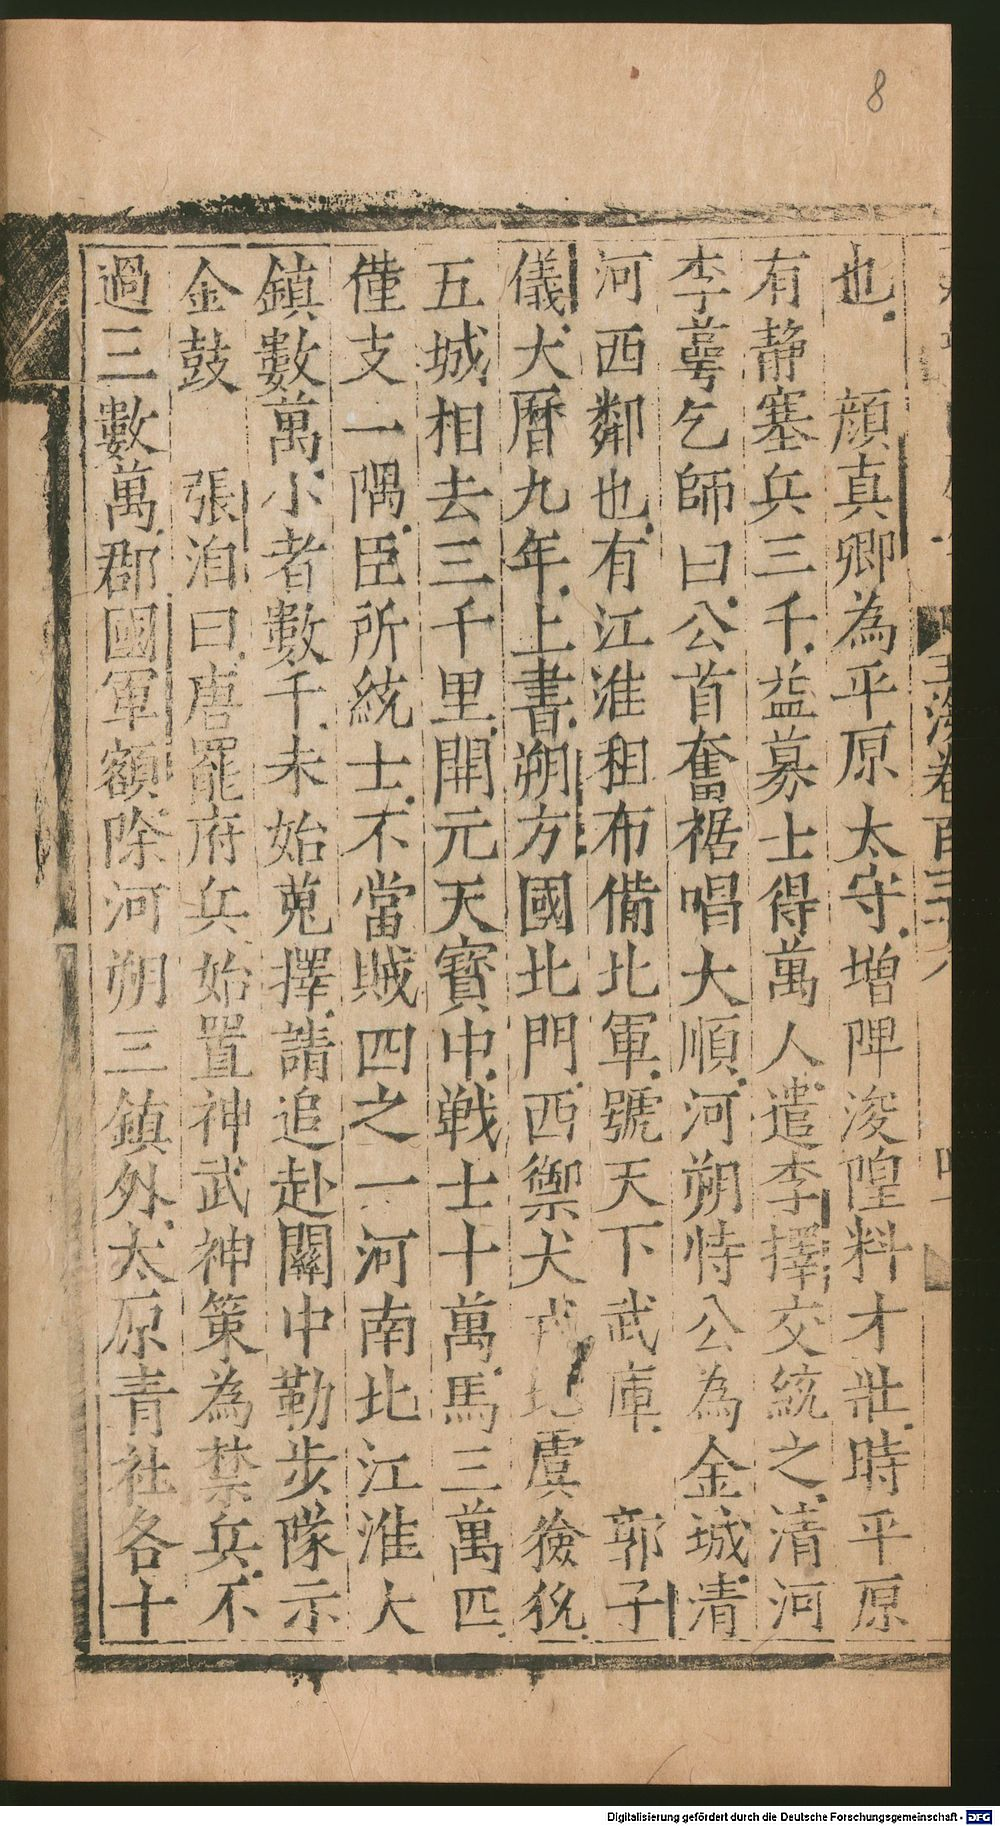 8
玉海卷百三十八
也　顔真卿為平原太守增陴浚隍料才壯時平原
有静塞兵三千益募士得萬人遣李擇交統之清河
李萼乞師曰公首奮裾唱大順河朔恃公為金城清
河西鄰也有江淮租布備北軍號天下武庫　郭子
儀大曆九年上書朔方國北門西禦犬戎北虞獫狁
五城相去三千里開元天寳中戰士十萬馬三萬匹
僅支一隅臣所統士不當賊四之一河南北江淮大
鎮數萬小者數千未始蒐擇請追赴關中勒步隊示
金鼓　張洎曰唐罷府兵始置神武神策為禁兵不
過三數萬郡國軍額除河朔三鎮外太原青社各十
Digitalisierung gefördert durch die Deutsche Forschungsgemeinschaft - DFG